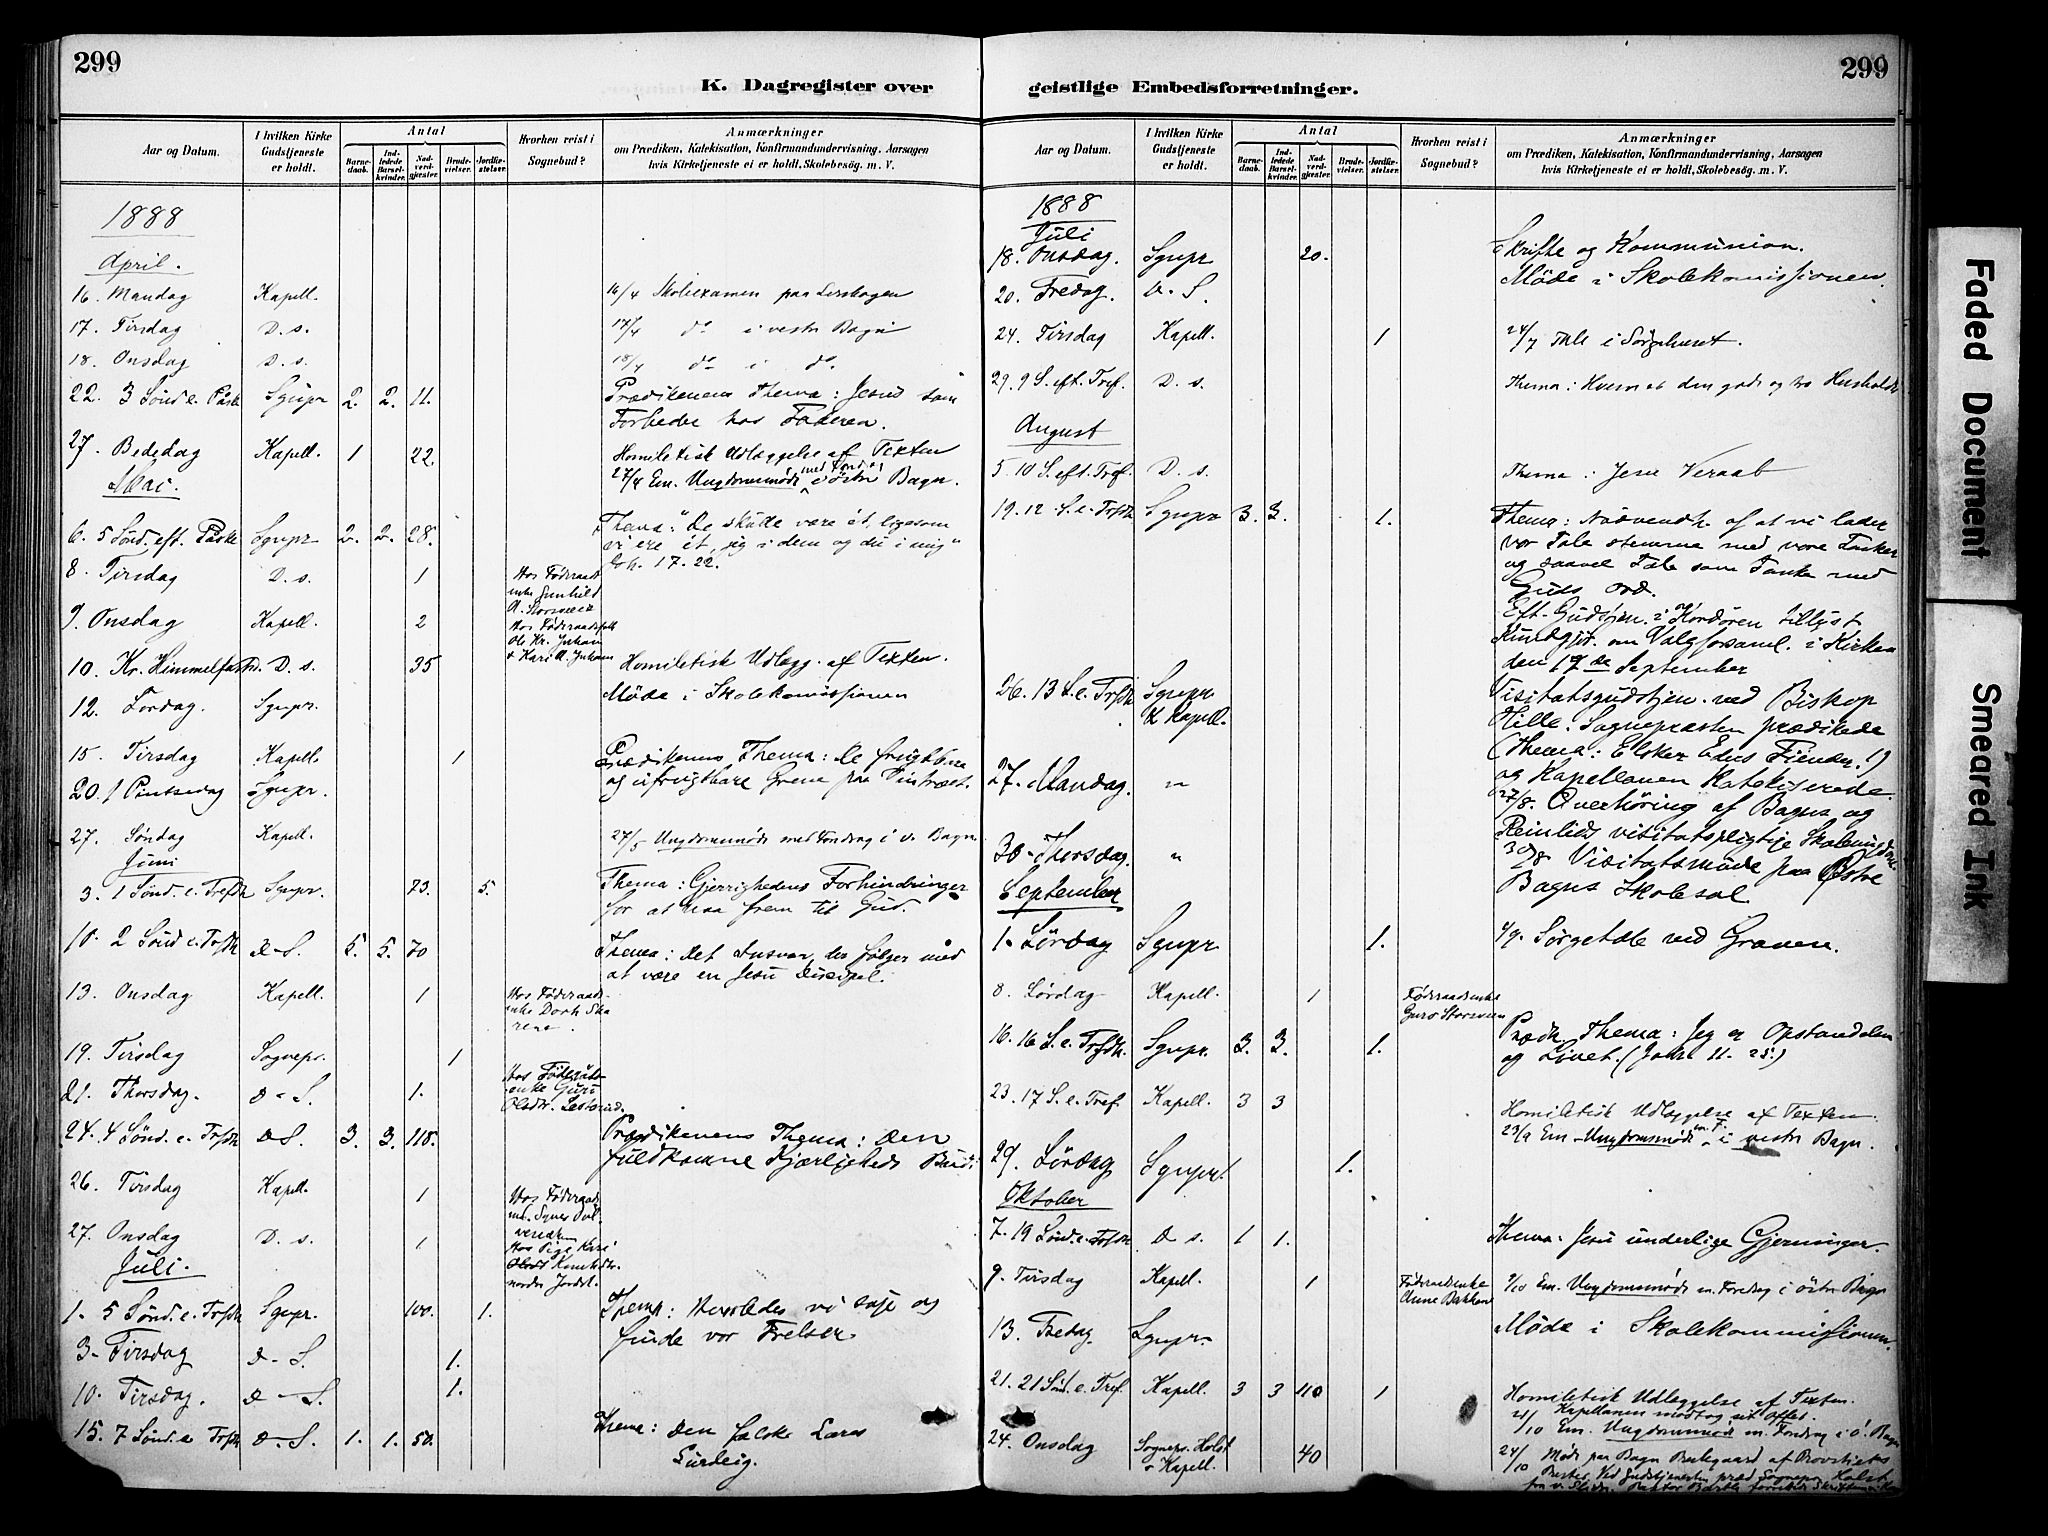 299
K. Dagregister over
Aar og Datum.
I hvilken Kirke Gudstjeneste er holdt.
Antal
Barnedaab.
Indledede Barselkvinder.
Nadverdgjæster.
Brudevielser.
Jordfæstelser.
Hvorhen reist i Sognebud?
Anmærkninger
om Prædiken, Katekisation, Konfirmandundervisning, Aarsagen
hvis Kirketjeneste ei er holdt, Skolebesøg. m. V.
1888
April.
16. Mandag Kapell. 16/4 Skoleexamen paa
17. Tirsdag D. s. 17/4 do i vestre Bagn
18. Onsdag D. s. 18/4 do i do
22. 3 Sönd e. Påske Sgnpr 2. 2. 11. Prædikenens Thema: Jesus som
Forbeder hos Faderen.
27. Bededag Kapell. 1 22. Homiletisk Udlæggelse af Texten
27/4 Em. Ungdomsmöde med Foredr. i östre Bagn.
Mai.
6. 5 Sönd. eft. Påske Sgnpr 2. 2. 28. Thema: "De skulle være ét, ligesom
vi ere ét, jeg i dem og du i mig"
Joh. 17. 22.
8. Tirsdag D. s. 1 Hos Föderaads
enke Gunhild
9. Onsdag Kapell. 2 Hos Föderaadsfolk
Ole Kr. Juham
+ Kari A. Juham
10. Kr. Himmelfartsd. D. s. 35 Homiletisk Udlægg. af Texten.
12. Lördag. Sgnpr. Möde i Skolekomissionen
15. Tirsdag Kapell. 1
20. 1 Pintsedag Sgnpr. Prædikenens Thema: De frugtbare
og ufrugtbare Grene paa Vintræet.
27. Söndag Kapell. 27/5 Ungdomsmöde med Foredrag i v. Bagn.
Juni
3. 1 Sönd. e. Trefdh Sgnpr. 73. 5. Thema: Gjerrighedens Forhindringer
for at naa frem til Gud.
10. 2 Sönd e. Trfdh D. S. 5. 5. 70 Thema: Det Ansvar, der fölger med
at være en Jesu Discipel.
13. Onsdag Kapell. 1 Hos Föderaads-
enke Dorth
19. Tirsdag Sognepr. 1
21. Thorsdag. D. S. 1. Hos
enke Guri
Olsdtr.
24. 4 Sönd. e. Trfdh D. S. 3. 3. 118. Prædikenens Thema: Den
fuldkomne Kjærligheds Bud.
26. Tirsdag Kapell. 1 Hos Föderaads
27. Onsdag D. s. 1 Hos Pige Kari
Juli.
1. 5 Sönd. e. Trfdh Sgnpr. 100. 1. Thema: Hvorledes vi söge og
finde vor Frelser.
3. Tirsdag D. S. 1.
10. Tirsdag. D. S. 1.
15. 7 Sönd. e Trfdh D. S. 1. 1. 50. Thema: Den falske Læres
Surdeig.
299
geistlige Embedsforretninger.
Aar og Datum.
I hvilken Kirke Gudstjeneste er holdt.
Antal
Barnedaab.
Indledede Barselkvinder.
Nadverdgjæster.
Brudevielser.
Jordfæstelser.
Hvorhen reist i Sognebud?
Anmærkninger
om Prædiken, Katekisation, Konfirmandundervisning, Aarsagen
hvis Kirketjeneste ei er holdt, Skolebesög. m. V.
1888
Juli
18. Onsdag. Sgnpr 20. Skrifte og Kommunion.
20. Fredag. D. S. Möde i Skolekomissionen.
24. Tirsdag Kapell. 1 24/7 Tale i Sörgehuset.
29. 9 S. eft. Tref. D. s. Thema: Hvem er den gode og tro Husholder
August
5. 10 S. eft. Tref. D. s. Thema: Jesu Veraab
19. 12. S. e. Trfdh Sgnpr 3. 3. 1. Thema: Nödvendh. af at vi lader
vor Tale stemme med vore Tanker
og saavel Tale som Tanke med
Guds Ord.
Eft. Gudstjen. i Kordören tillyst
Kundgjör. om Valgforsaml. i Kirken
den 17de September
26. 13 S. e. Trfdh Sgnpr
& Kapell. Visitatsgudstjen. ved Biskop
Hille: Sognepræsten prædikede
(Thema: Elsker Eders Fiender!)
og Kapellanen Katekiserede.
27. Mandag. " 27/8. Overhöring af Bagns og
Reinlids visitatspligtige Skoleungdom
30. Thorsdag. " 30/8 Visitatsmöde paa Østre
Bagns Skolesal
September
1. Lördag Sgnpr 1. 1/9. Sörgetale ved Graven.
8. Lördag Kapell. 1 Föderaadsenke
Guro Storsveen
16. 16 S. e. Trfdh. Sgnpr. 3. 3. 1. Prædk. Thema: Jeg er Opstandelsen
og Livet. (Joh. 11. 25.)
23. 17 S. e. Tref. Kapell. 3 3 Homiletisk Udlæggelse af Texten.
23/9 Em Ungdomsmöde m. F. i vestre Bagn.
29. Lördag Sgnpr. 1.
Oktober
7. 19 Sönd. e. Trfdh. D s. 1 1. Thema: Jesu underlige Gjerninger.
9. Tirsdag Kapell. 1 Föderaadsenke
Anne Bakken 9/10 Em. Ungdomsmöde m. Foredrag i östre Bagn
13. Fredag Sgnpr. Möde i Skolekommissionen.
21. 21 Sönd. e. Tref. Kapell. 3 3 40 1 Homiletisk Udlæggelse af Texten.
Kapellanen modtog sit Offer.
21/10 Em. Ungdomsmöde m. Foredrag i ö. Bagn
24. Onsdag Sognepr. Holst
o Kapell. 40 24/10 Möde paa Bagn Prestegaard af Provstiets
Prester. Ved Gudstjenesten præd. Sognepr. Holst
Faded Document
Smeared Ink